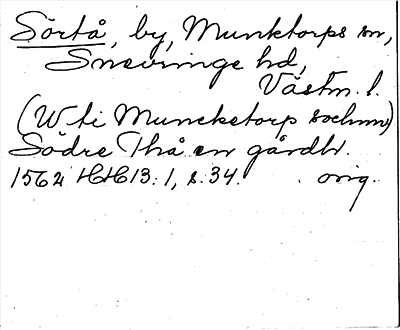 Sörtå, by, Munktorps sn,
Snevringe hd,
Västm. l.
(W ti Muncketorp sochnn)
Södre Thå en gårdh.
1562 HH 13:1, s. 34. orig.